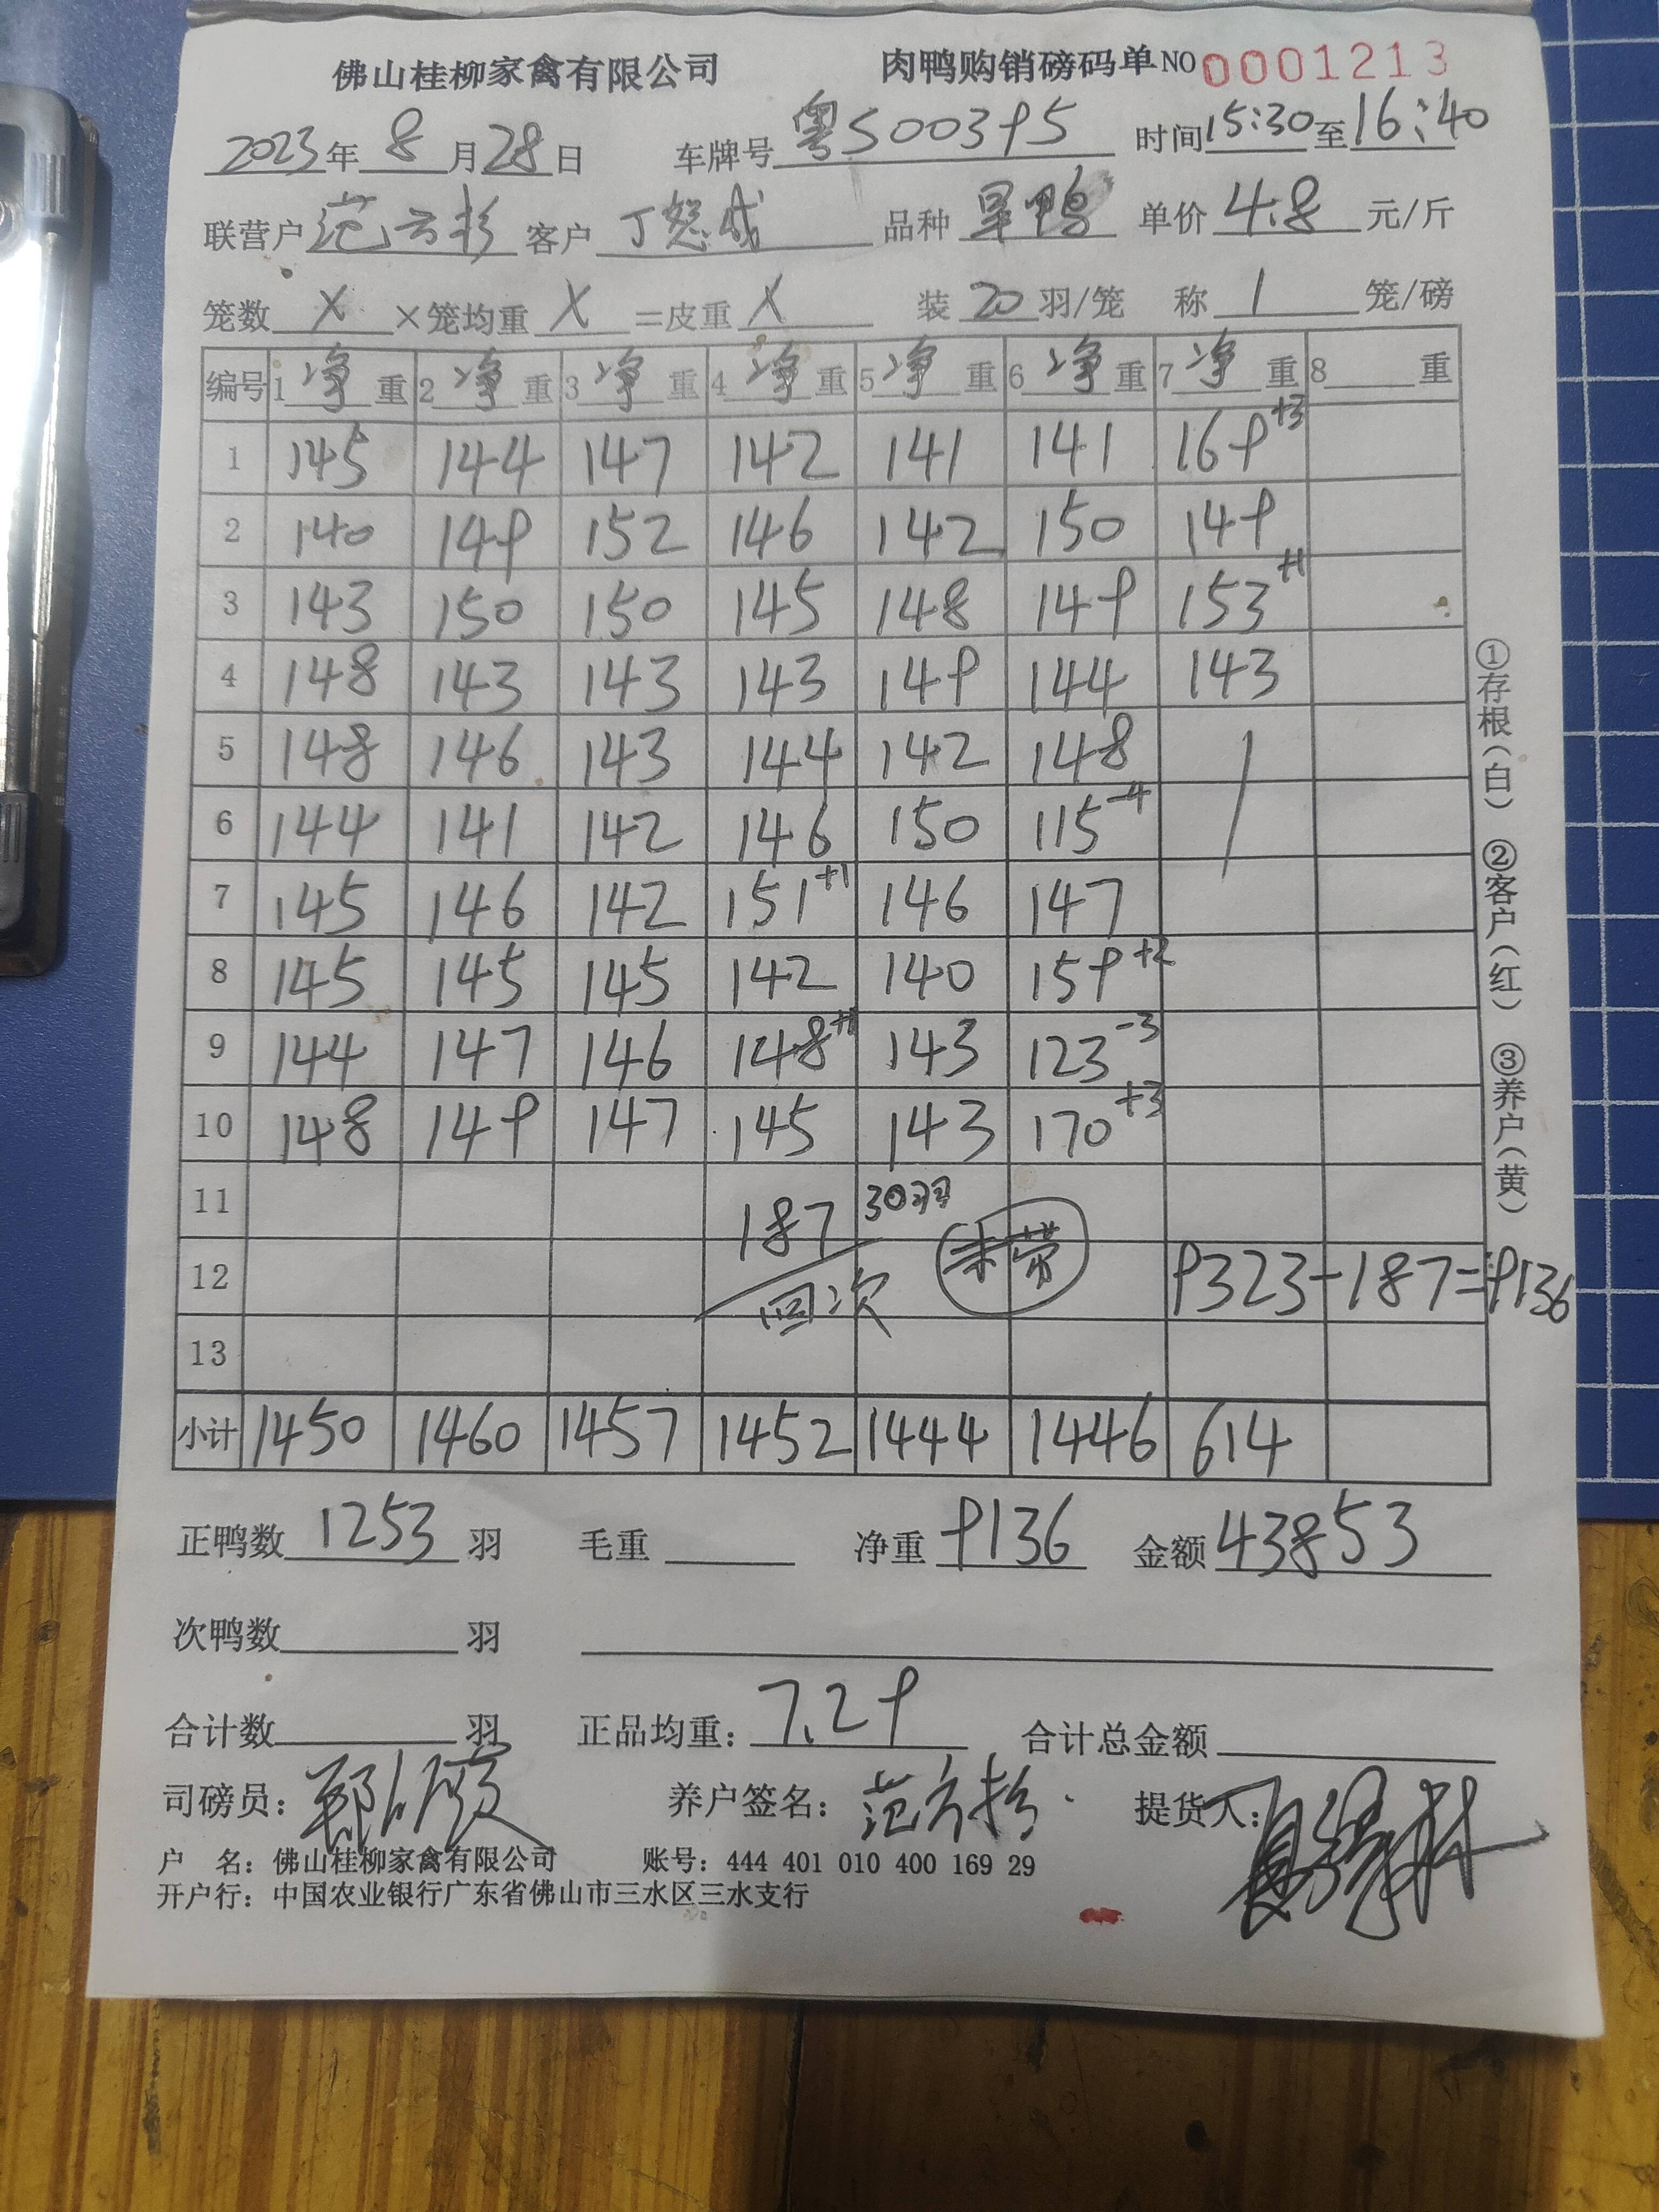 佛山桂柳家禽有限公司 肉鸭购销磅码单 NO 0001213
2023年 8 月 28 日 车牌号 粤S00395 时间 15:30 至 16:40
联营户 范云杉 客户 丁怒成 品种 旱鸭 单价 4.8 元/斤
笼数 X ×笼均重 X =皮重 X 装 20 羽/笼 称 1 笼/磅
编号 1 净 重 2 净 重 3 净 重 4 净 重 5 净 重 6 净 重 7 净 重 8 重
1 145 144 147 142 141 141 169+3
2 140 149 152 146 142 150 149
3 143 150 150 145 148 149 153+1
4 148 143 143 143 149 144 143
5 148 146 143 144 142 148
6 144 141 142 146 150 115-4
7 145 146 142 151+1 146 147
8 145 145 145 142 140 159+2
9 144 147 146 148+1 143 123-3
10 148 149 147 145 143 170+3
11 187 30羽
12 回次 未带 9323-187=9136
13
小计 1450 1460 1457 1452 1444 1446 614
正鸭数 1253 羽 毛重 净重 9136 金额 43853
次鸭数 羽
合计数 羽 正品均重: 7.29 合计总金额
司磅员: 养户签名: 范云杉 提货人:
户 名: 佛山桂柳家禽有限公司 账号: 444 401 010 400 169 29
开户行: 中国农业银行广东省佛山市三水区三水支行
①存根(白) ②客户(红) ③养户(黄)